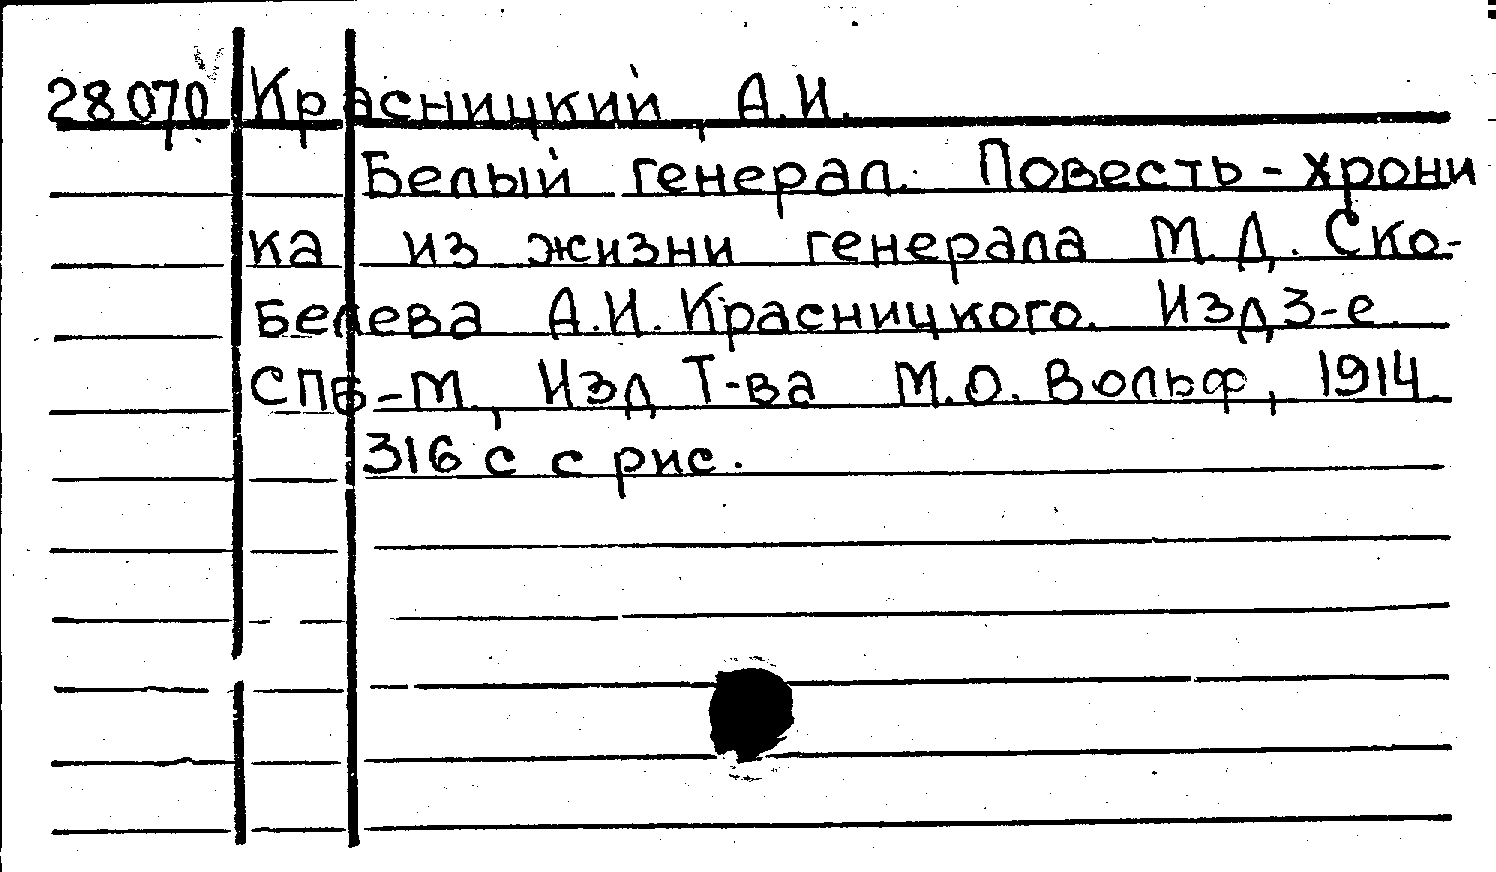 28070 Красницкий, А.И.
Белый генерал. Повесть-хрони
ка из жизни генерала М.Д. Ско-
белева А.И. Красницкого. Изд 3-е
СПб-М., Изд Т-ва М.О. Вольф, 1914.
316 с с рис.